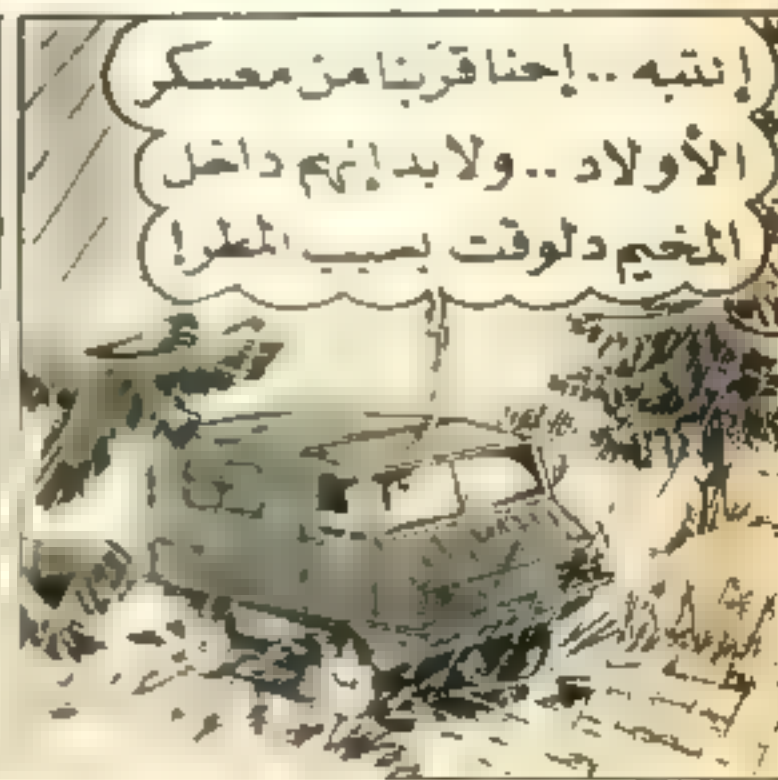 إنتبه .. إحنا قرّبنا من معسكر
الأولاد .. ولا بد إنهم داخل
المخيم دلوقت بسبب المطر!